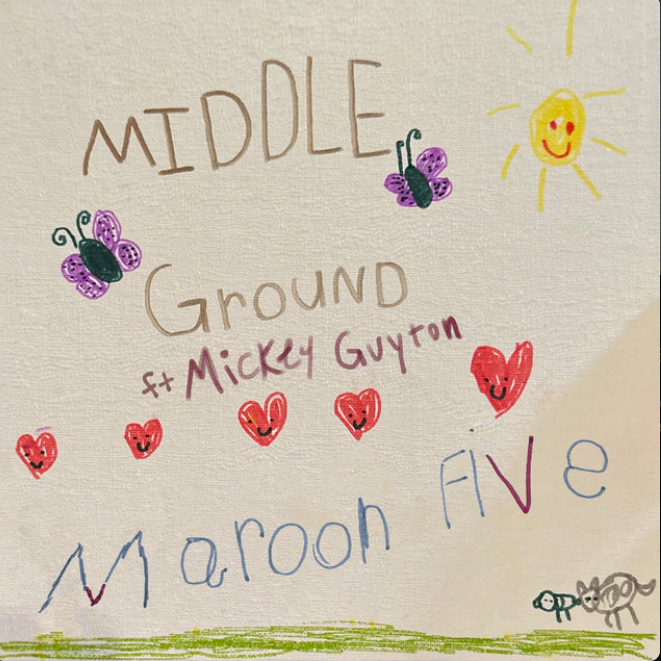 MIDDLE
GroUND
ft Mickey Guyton
Maroon Five